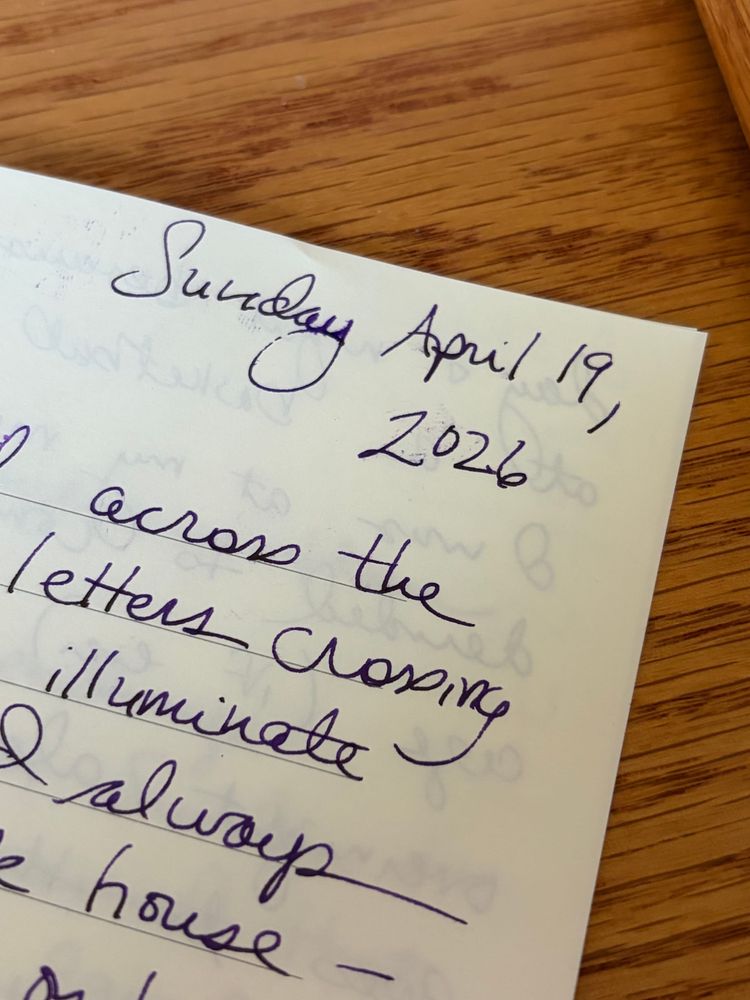 Sunday April 19,
2026
across the
letters crossing
illuminate
I always
house –